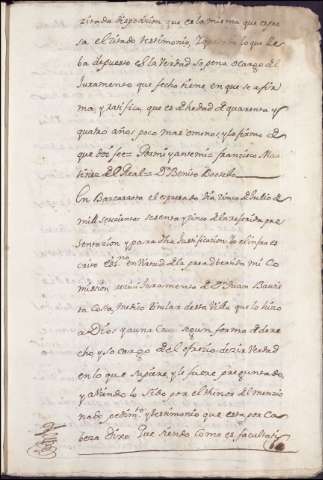 citada disposicion, que es la misma que expre
sa el citado testimonio, y que todo lo que lle
ba depuesto es la Verdad so pena o cargo del
Juramento que fecho tiene, en que se afir
ma, y ratifica, que es de hedad de quarenta y
quatro años, poco mas o menos, y lo firmo de
que doi fee. Y ante mi francisco Mar
tinez del Real. D.n Benito
En Barcarrota el expresado dia cinco de Julio de
mill setecientos sesenta y cinco de la referida pre
sentacion, y para dha Justificacion, Yo el infraes
crito es.no en Virtud de la preadbertida mi Co
mission recivi Juramento de D.n Juan Bauis
ta Costa, Medico titular desta Villa que lo hizo
a Dios y a una Cruz segun forma de dere
cho y so cargo del ofrecio dezir Verdad
en lo que supiere, y le fuere preguntado
y abiendo lo sido por el thenor del menzio
nado pedim.to y testimonio que esta por Ca
beza Dixo Que siendo como es facultati